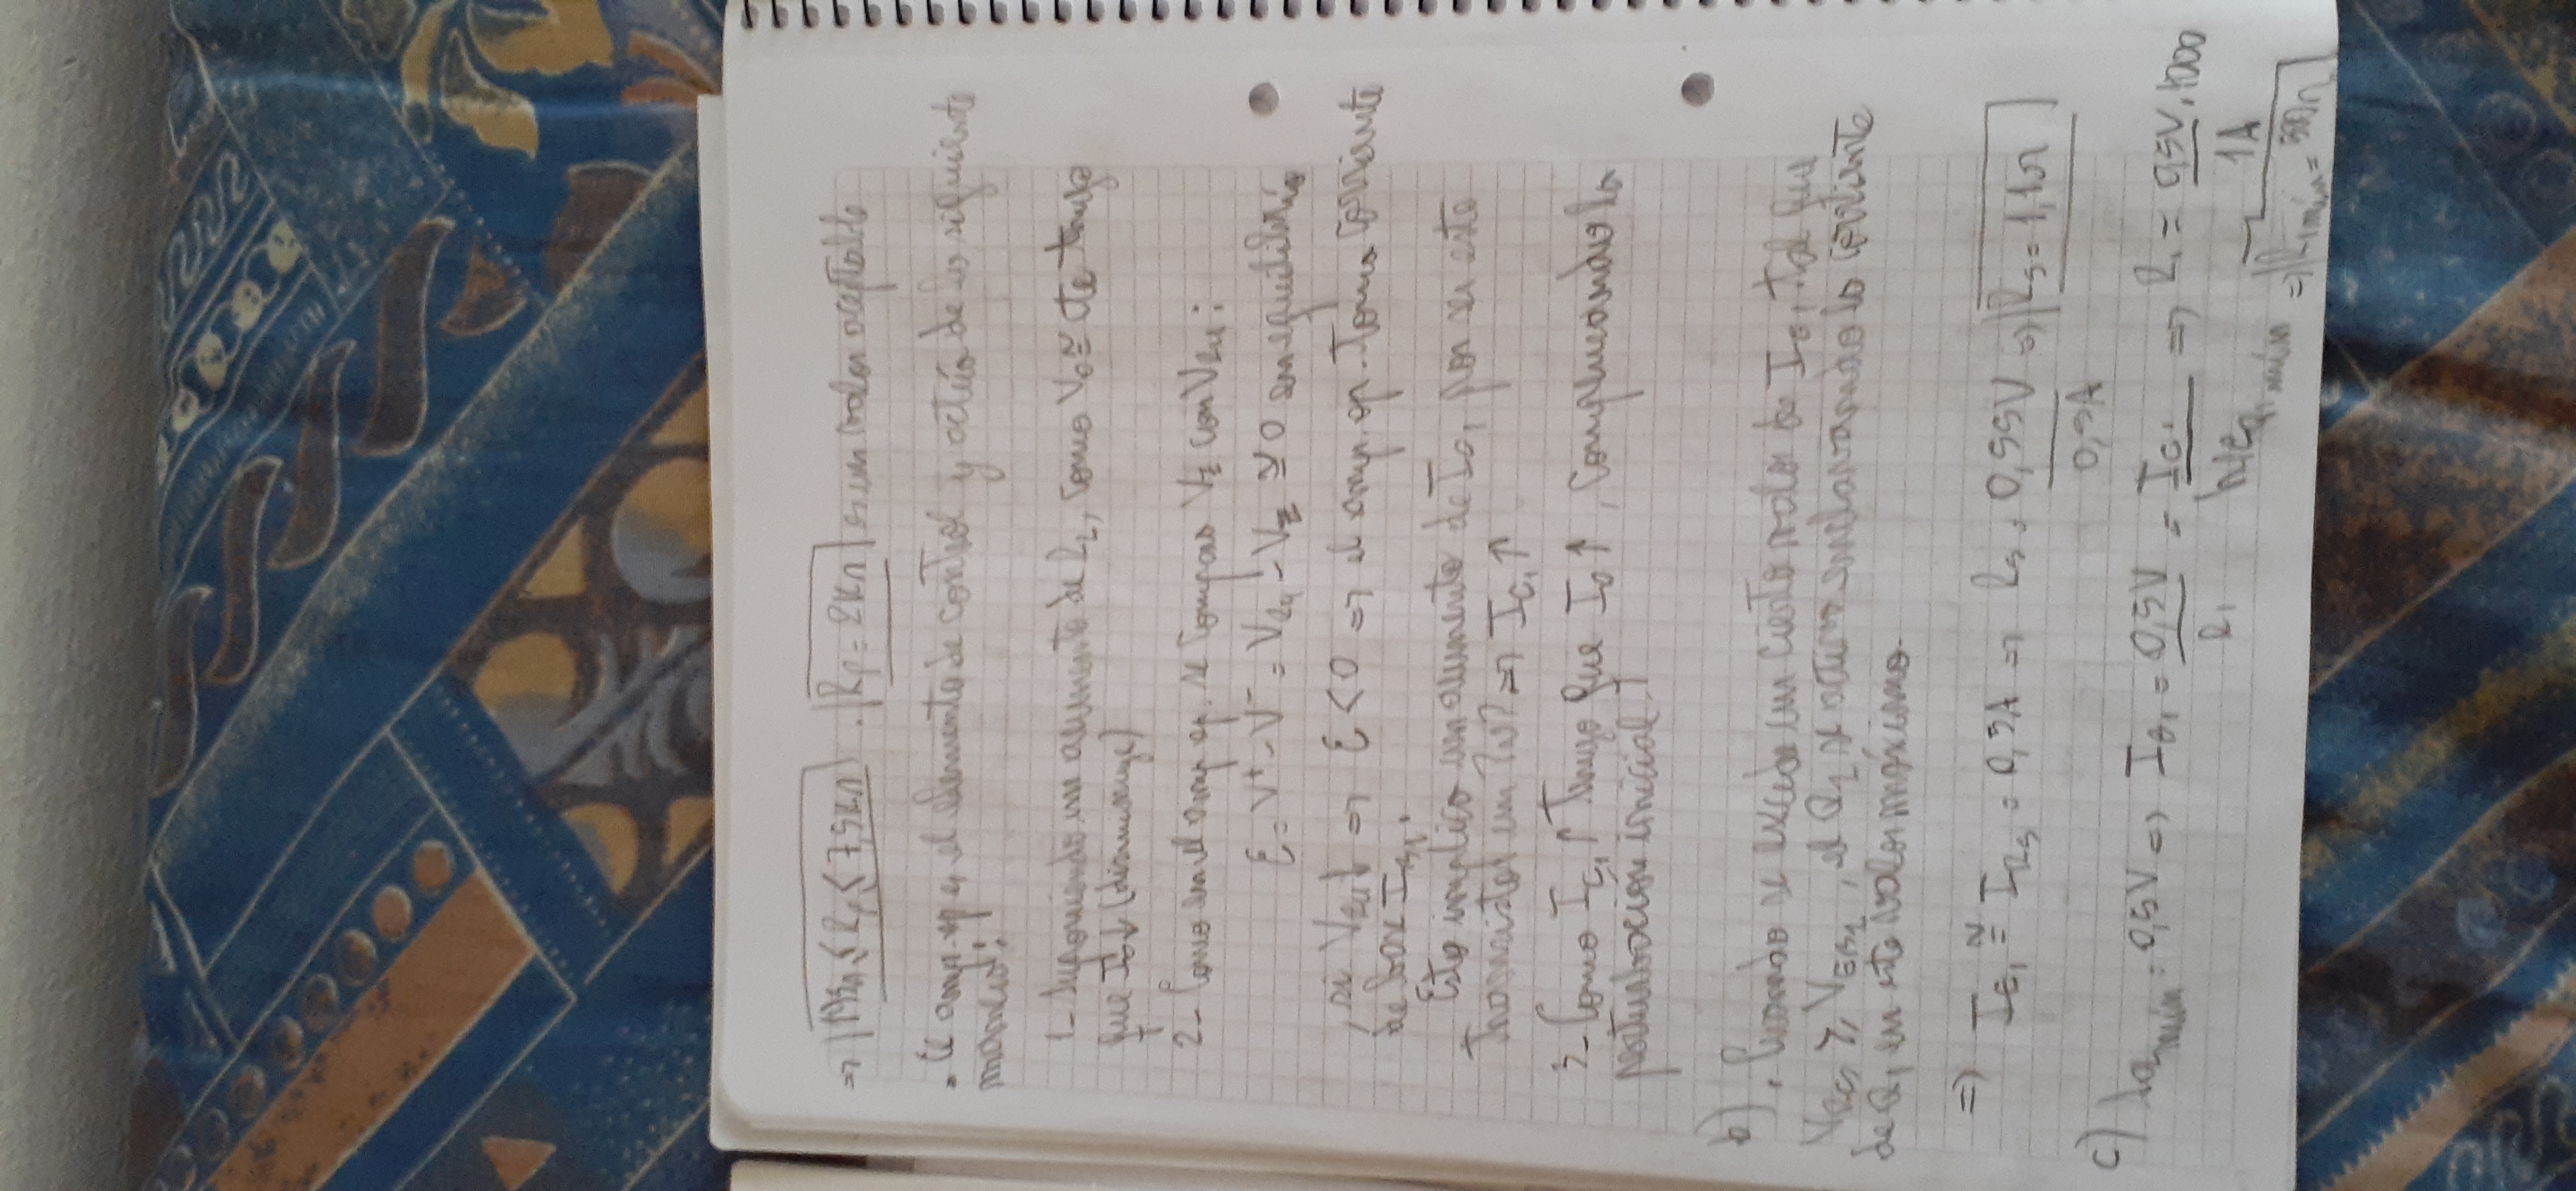 ≤ Rp ≤ 7,5KΩ . Rp = 2KΩ es un valor aceptable
. El amp. op es el elemento de control y actúa de la siguiente
manera:
1- Suponiendo un aumento de RL, como Vo ≅ cte tengo
que Io↓ (disminuye)
2- Como en el amp op. se compara Vz con VR4:
ε = V⁺ - V⁻ = VR4 - Vz ≅ 0 en equilibrio
, si VR4↓ => ε < 0 => el amp. op. toma corriente
de base IB1.
Esto implica un aumento de por ser este
transistor un => IC1↑
3- Como IC1↑ tengo que Io↑, la
perturbación inicial.
b) . Cuando se excede un cierto valor de tal que
≥ el Q2 se activa enclavando la corriente
de Q1 en este valor máximo.
=> IE1 ≅ IRS = 0,5A => RS = 0,55V/0,5A => RS = 1,1Ω
c) = 0,5V => = 0,5V/R1 = => R1 = 0,5V/1A . 1000
=> R1mín = 500Ω